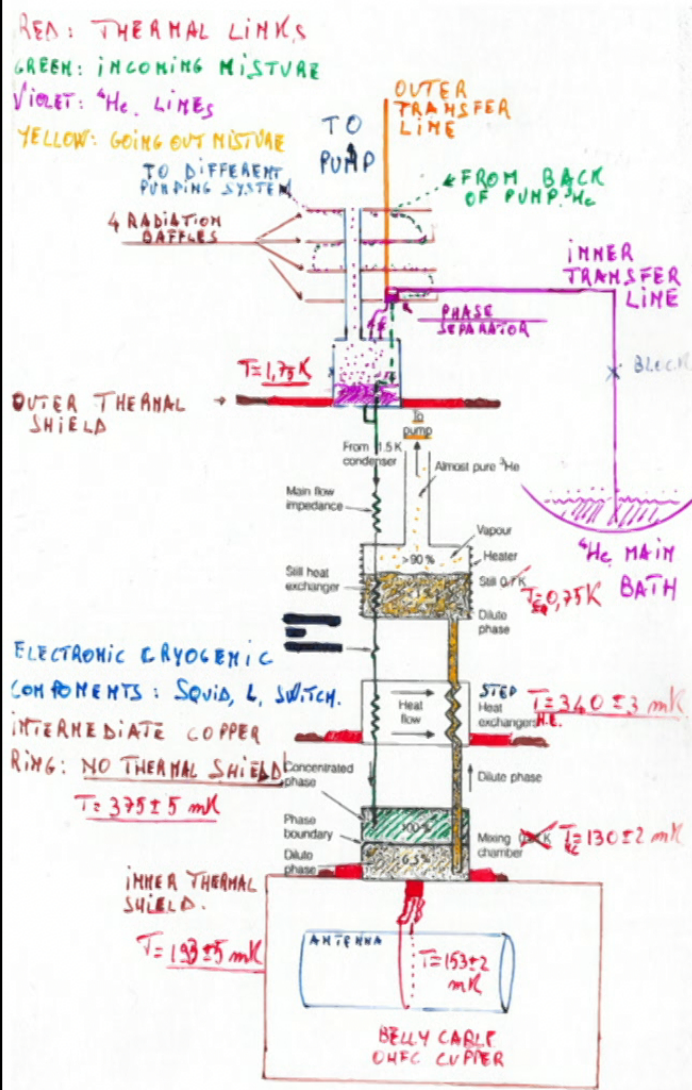 RED: THERMAL LINKS
GREEN: INCOMING MISTURE
VIOLET: ⁴He. LINES
YELLOW: GOING OUT MISTURE
OUTER
TRANSFER
LINE
TO
PUMP
TO DIFFERENT
PUMPING SYSTEM
FROM BACK
OF PUMP ³He
4 RADIATION
BAFFLES
INNER
TRANSFER
LINE
PHASE
SEPARATOR
T=1,75K
OUTER THERMAL
SHIELD
To
pump
From 1.5 K
condenser
Almost pure ³He
Main flow
impedance
Vapour
>90%
Heater
⁴He MAIN
BATH
Still heat
exchanger
Still
T=0,75K
Dilute
phase
ELECTRONIC CRYOGENIC
COMPONENTS: SQUID, L, SWITCH.
INTERMEDIATE COPPER
RING: NO THERMAL SHIELD
T=375±5 mK
Heat
flow
STEP
Heat
exchangers
H.E.
T=340±3 mK
Concentrated
phase
Dilute phase
Phase
boundary
~100%
Mixing
chamber
T=130±2 mK
Dilute
phase
6.5%
INNER THERMAL
SHIELD.
T=193±5 mK
ANTENNA
T=153±2
mK
BELLY CABLE
OHFC CUPPER